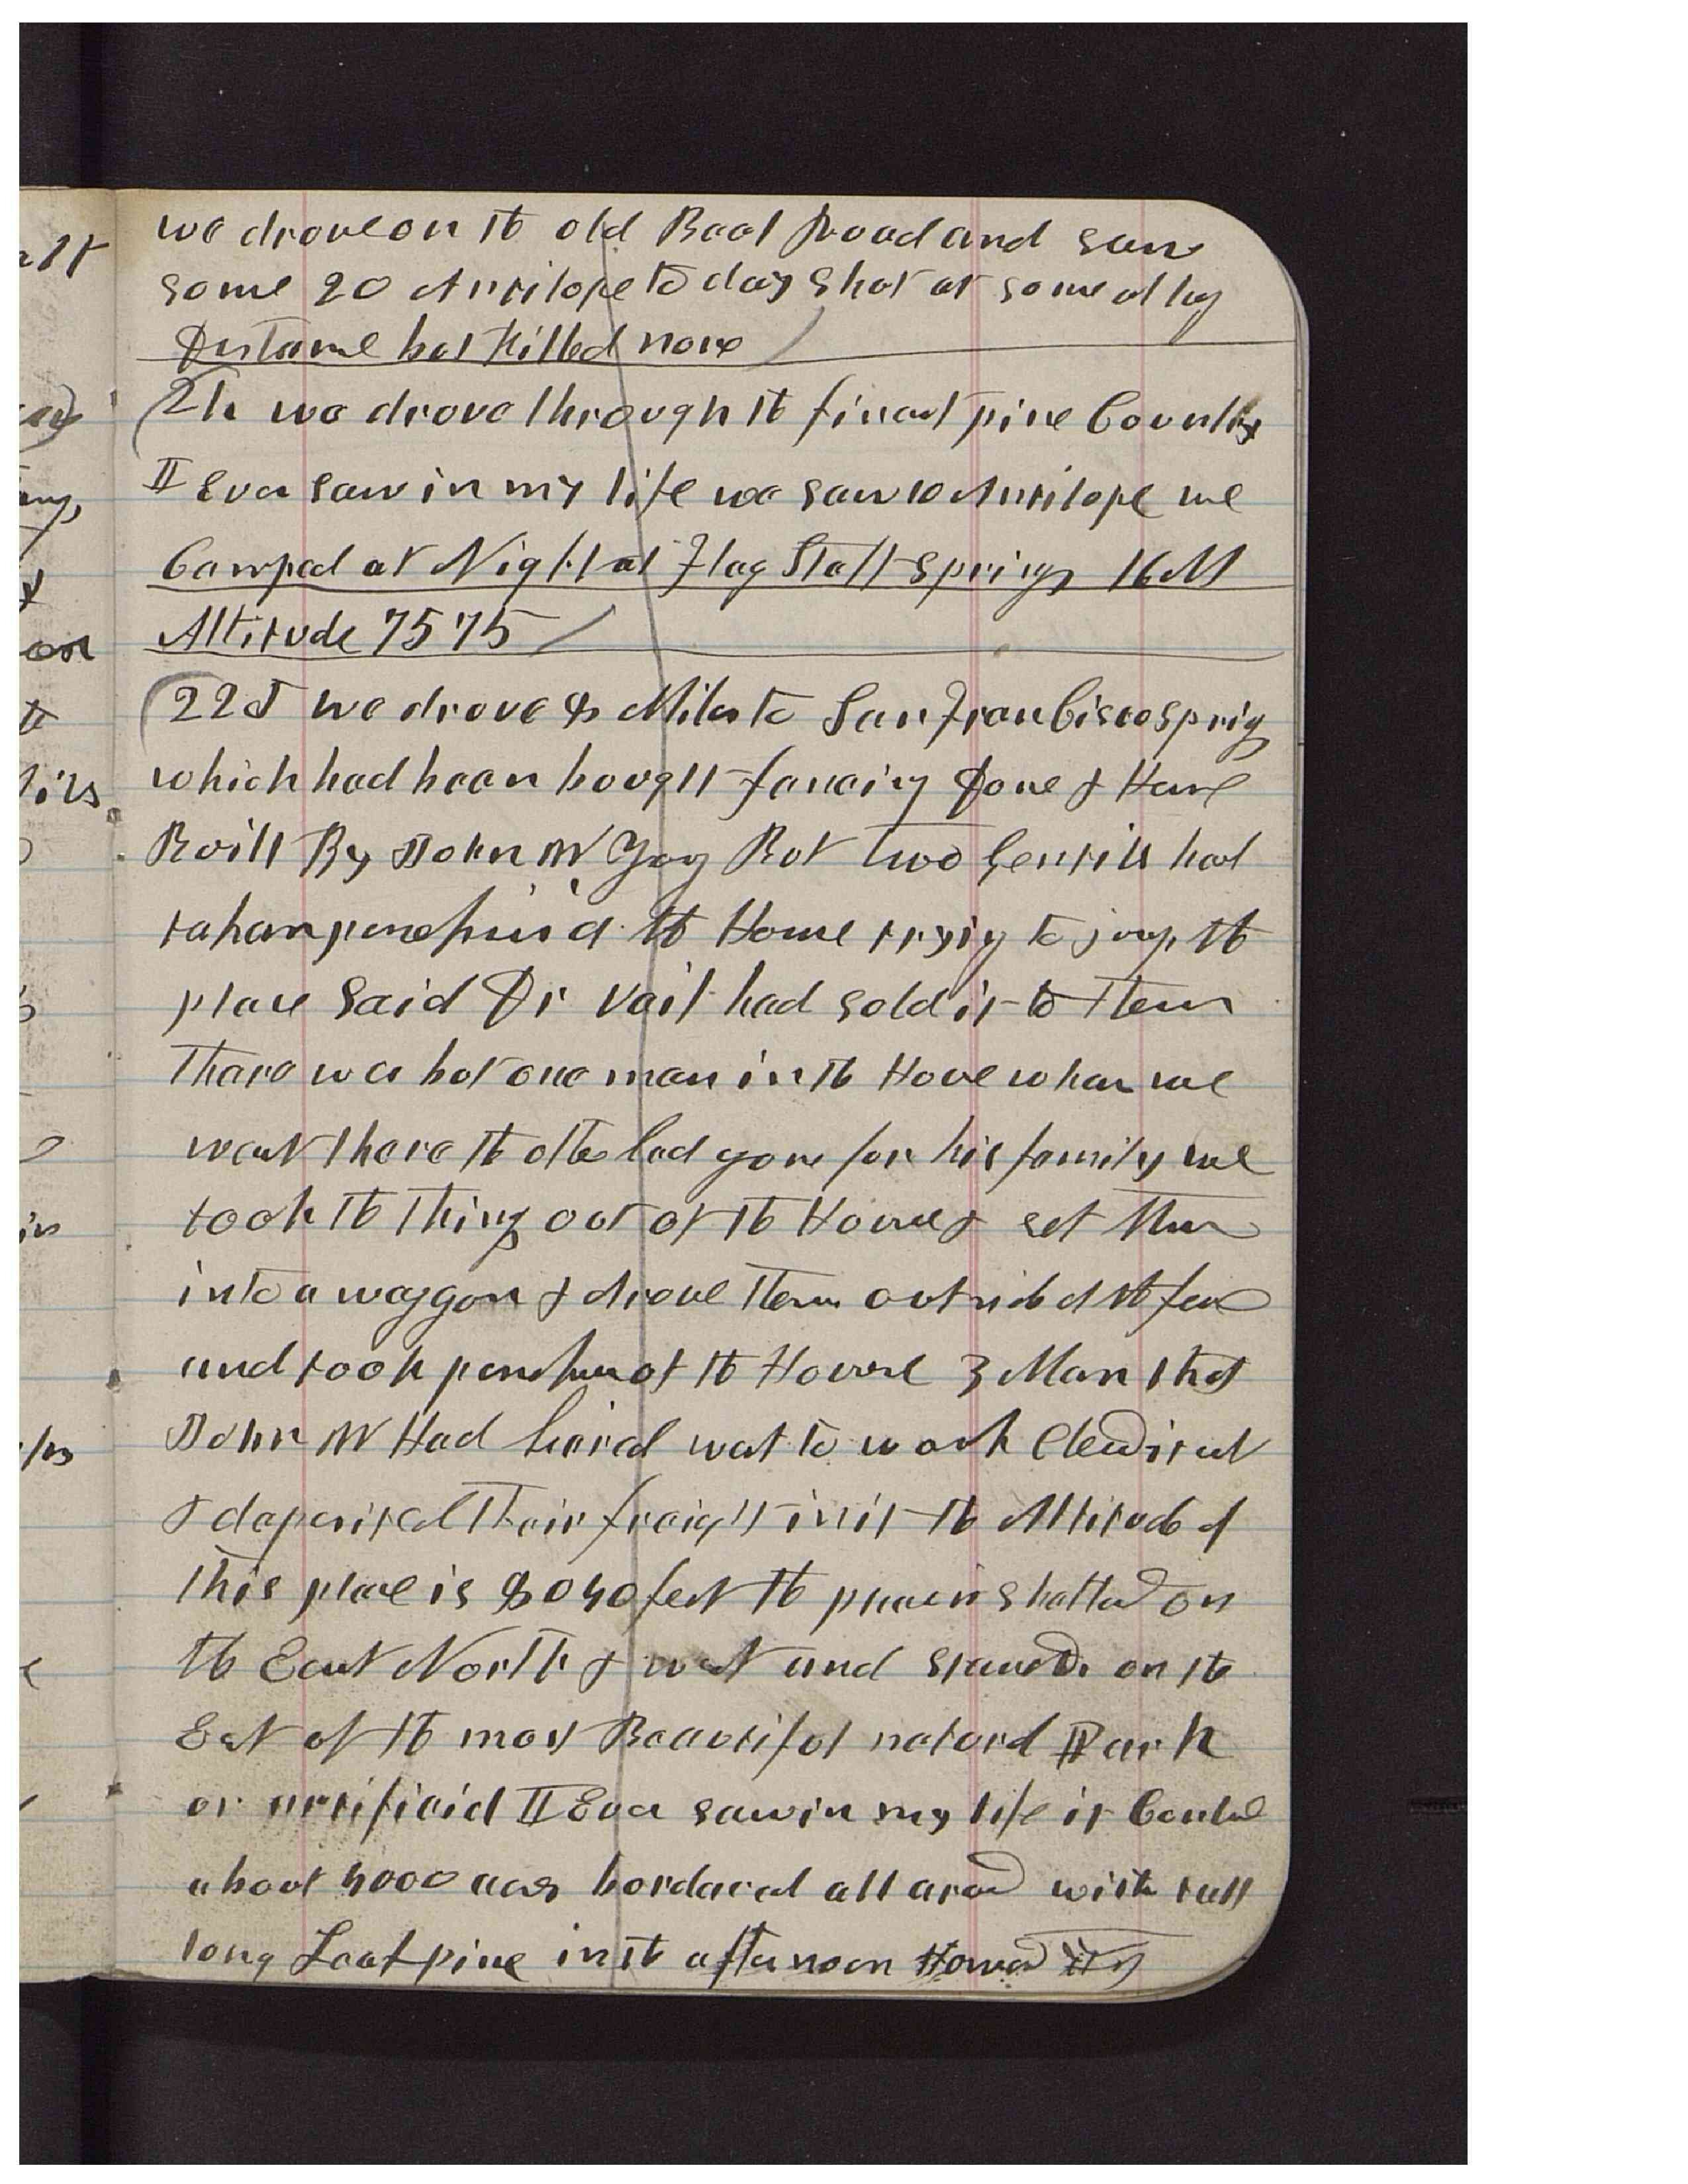 we drove on the old Beal Road and saw
some 20 Antilope to day shot at some at long
Distance but killed none
21 we drove through the finest pine Country
I Ever saw in my life we saw 10 Antilope we
Camped at Night at Flag Staff Springs 16 M
Altitude 7575
22d we drove 8 Miles to San Francisco Spring
which had been bought fencing done & House
Built By John W Yog But two Gentiles had
taken possession of the House trying to jump the
place said Dr Vail had sold it to them
There was but one man in the House when we
went there the other had gone for his family we
took the things out of the House & set them
into a waggon & drove them outside of the fence
and took possession of the House 3 Men that
John W Had hired went to work cleaned it out
& deposited their freight in it the Altitude of
this place is 8040 feet the place is shelterd on
the East North & west and stands on the
East of the most Beautiful natural Park
or artificial I Ever saw in my life it Contains
about 4000 acres bordered all around with tall
long Leaf pine in the afternoon